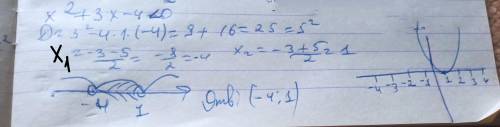 x²+3x-4<0
D=3²-4·1·(-4)=9+16=25=5²
x₁=(-3-5)/2=-8/2=-4 x₂=(-3+5)/2=1
-4 1 Отв: (-4;1)
-4 -3 -2 -1 1 2 3 4